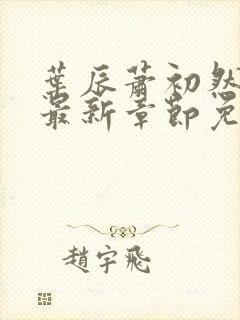 葉辰蕭初然
最新章節免
趙宇飛